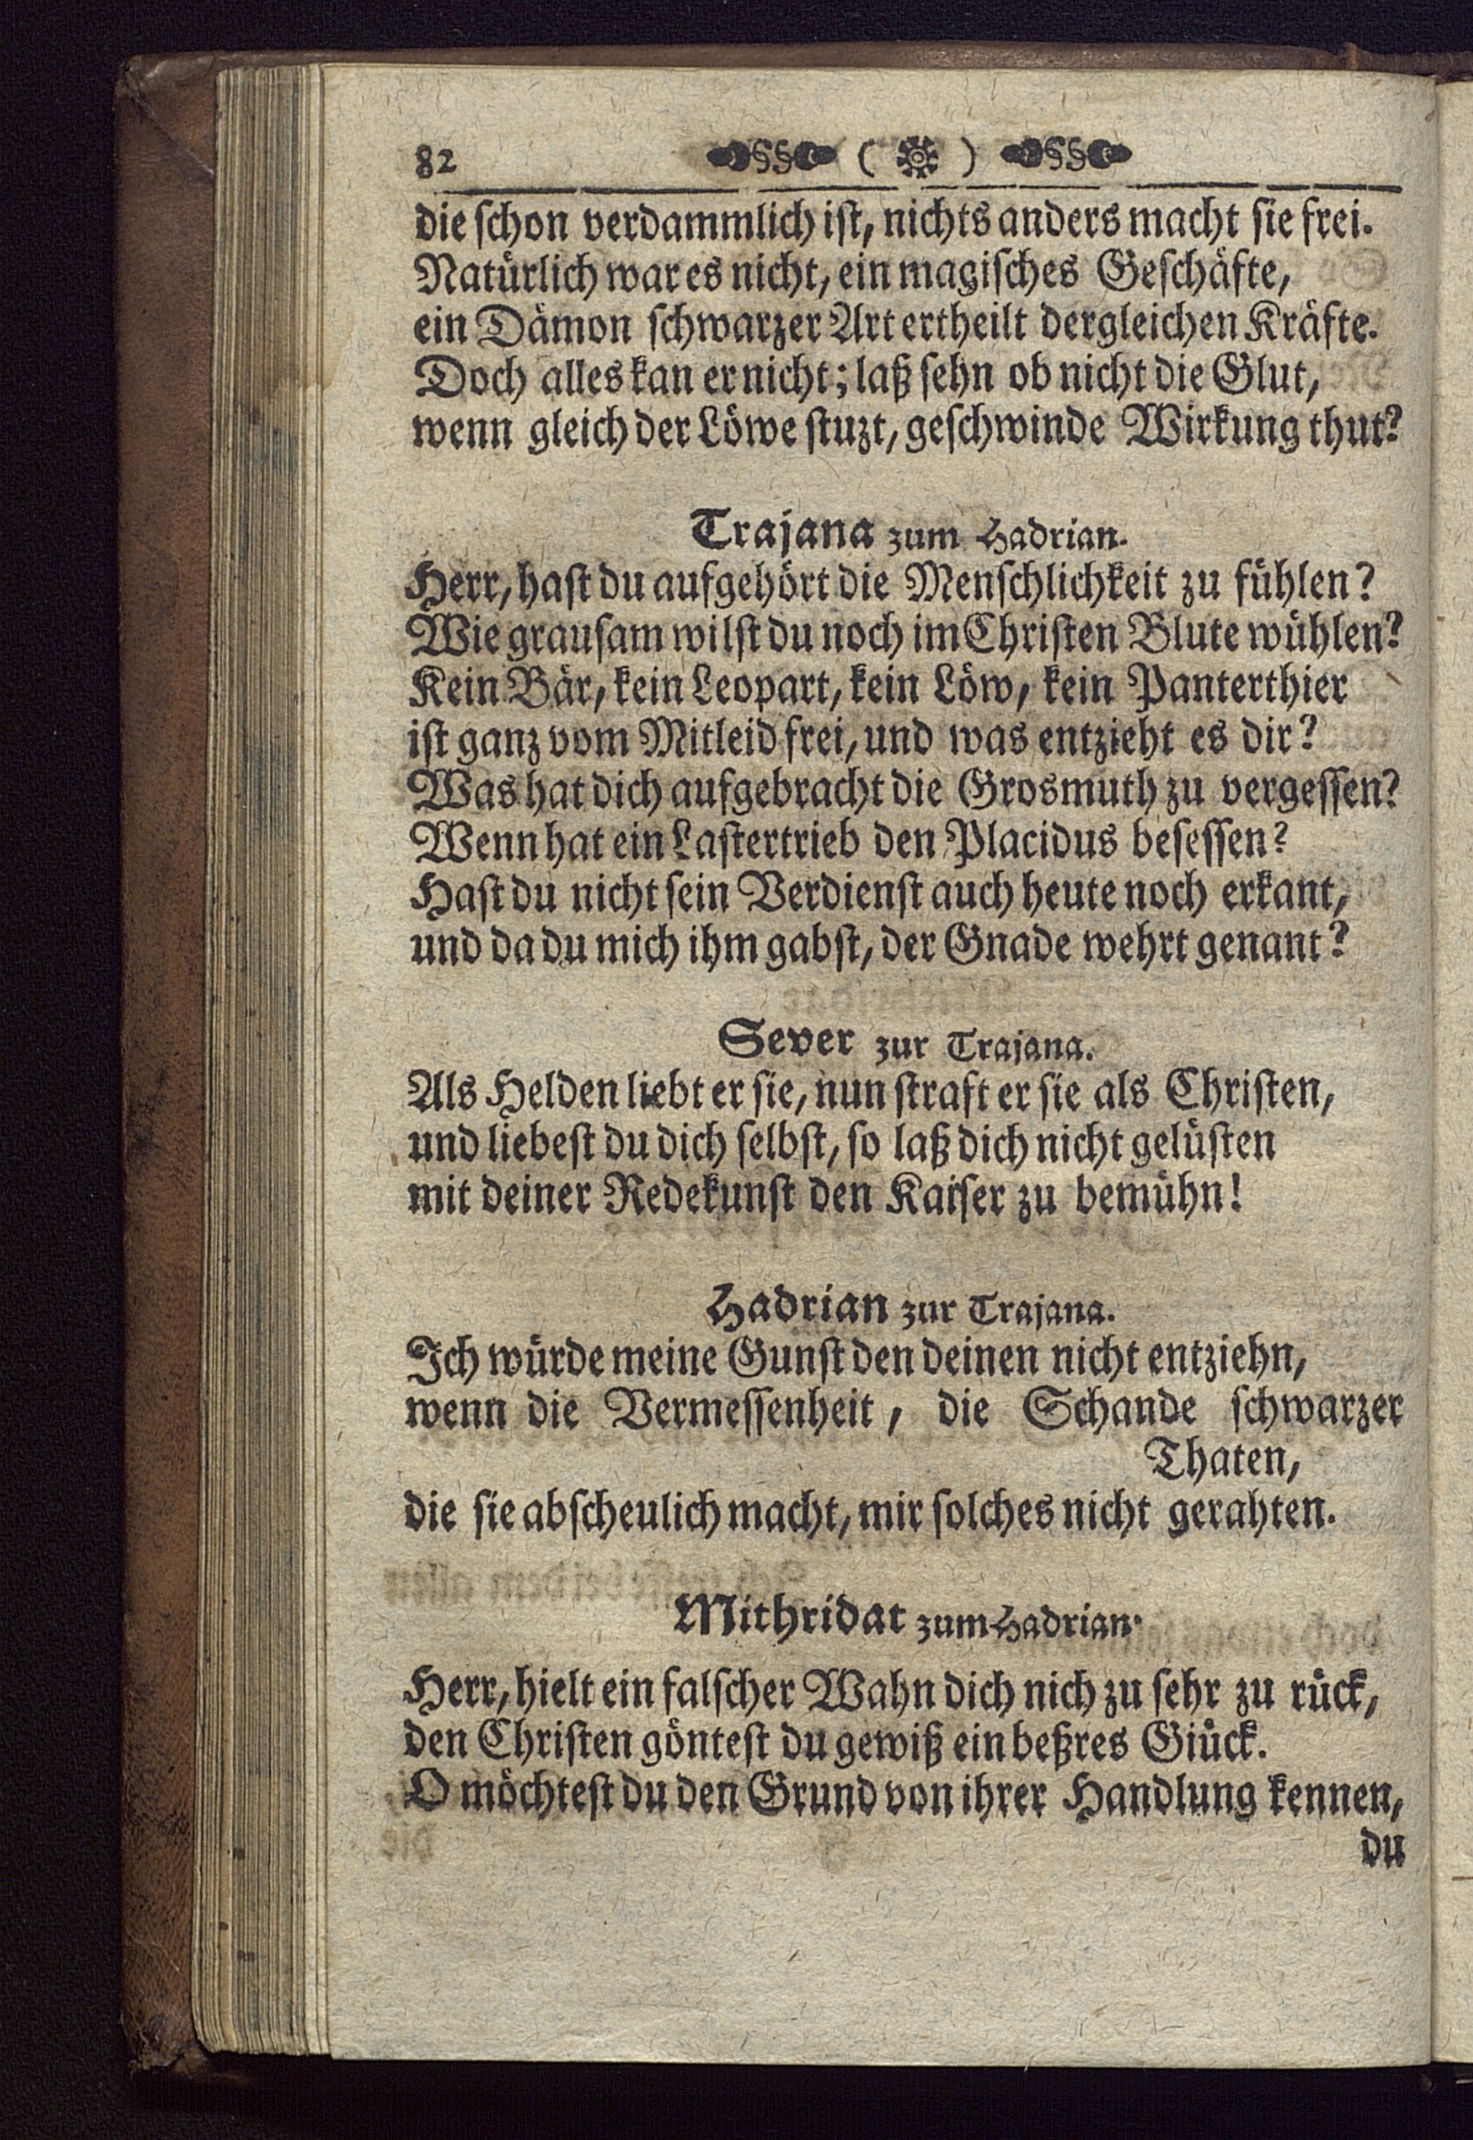 82 ( )
die schon verdammlich ist, nichts anders macht sie frei.
Natürlich war es nicht, ein magisches Geschäfte,
ein Dämon schwarzer Art ertheilt dergleichen Kräfte.
Doch alles kan er nicht; laß sehn ob nicht die Glut,
wenn gleich der Löwe stuzt, geschwinde Wirkung thut?
Trajana zum Hadrian.
Herr, hast du aufgehört die Menschlichkeit zu fühlen?
Wie grausam wilst du noch im Christen Blute wühlen?
Kein Bär, kein Leopart, kein Löw, kein Panterthier
ist ganz vom Mitleid frei, und was entzieht es dir?
Was hat dich aufgebracht die Grosmuth zu vergessen?
Wenn hat ein Lastertrieb den Placidus besessen?
Hast du nicht sein Verdienst auch heute noch erkant,
und da du mich ihm gabst, der Gnade wehrt genant?
Sever zur Trajana.
Als Helden liebt er sie, nun straft er sie als Christen,
und liebest du dich selbst, so laß dich nicht gelüsten
mit deiner Redekunst den Kaiser zu bemühn!
Hadrian zur Trajana.
Ich würde meine Gunst den deinen nicht entziehn,
wenn die Vermessenheit, die Schande schwarzer
Thaten,
die sie abscheulich macht, mir solches nicht gerahten.
Mithridat zum Hadrian.
Herr, hielt ein falscher Wahn dich nich zu sehr zu rück,
den Christen göntest du gewiß ein beßres Giück.
O möchtest du den Grund von ihrer Handlung kennen,
du